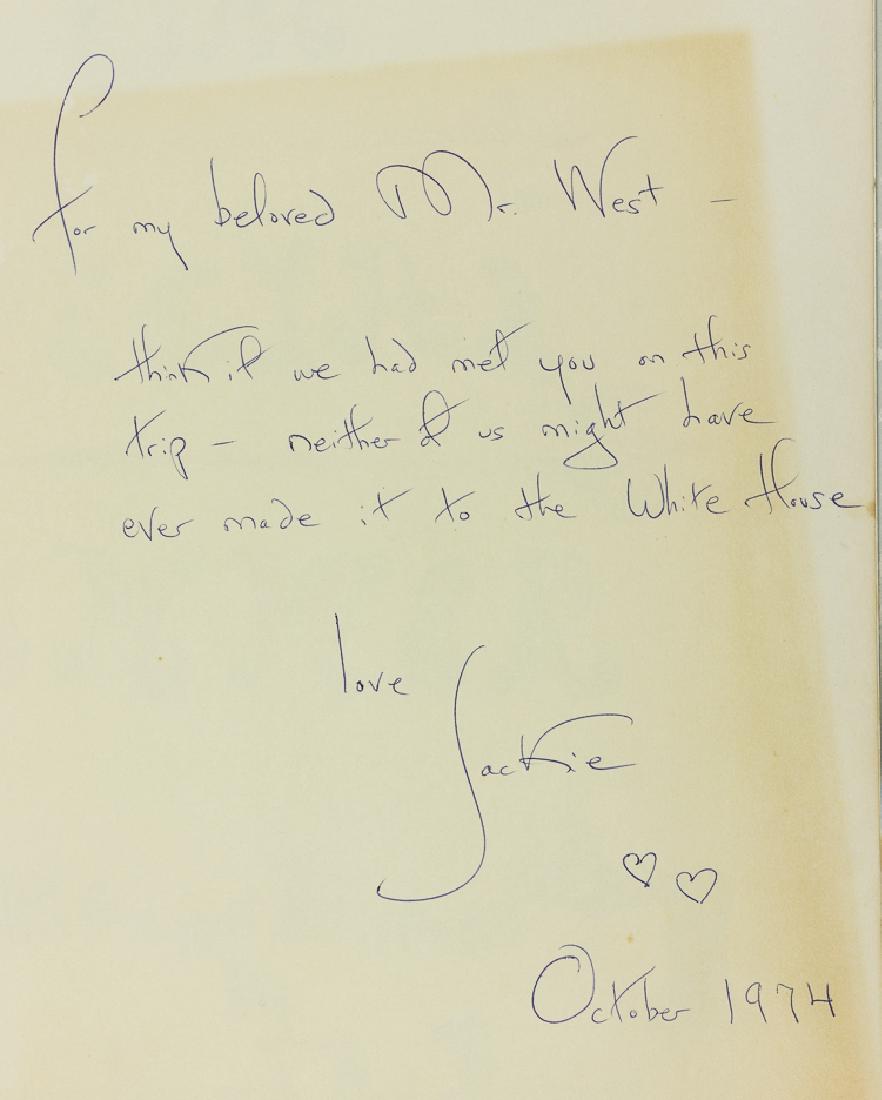 For my beloved Mr. West —
think if we had met you on this
trip — neither of us might have
ever made it to the White House
love
Jackie
♡ ♡
October 1974